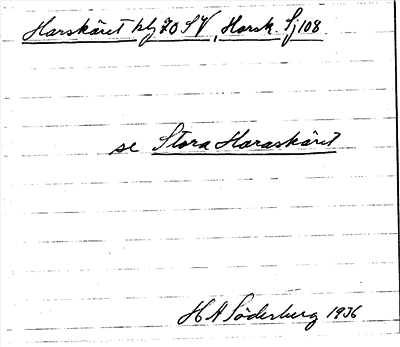 Harskäret hbj 70 SV, Harsk. Sj 108.
se Stora Haraskäret
H A Söderberg 1936